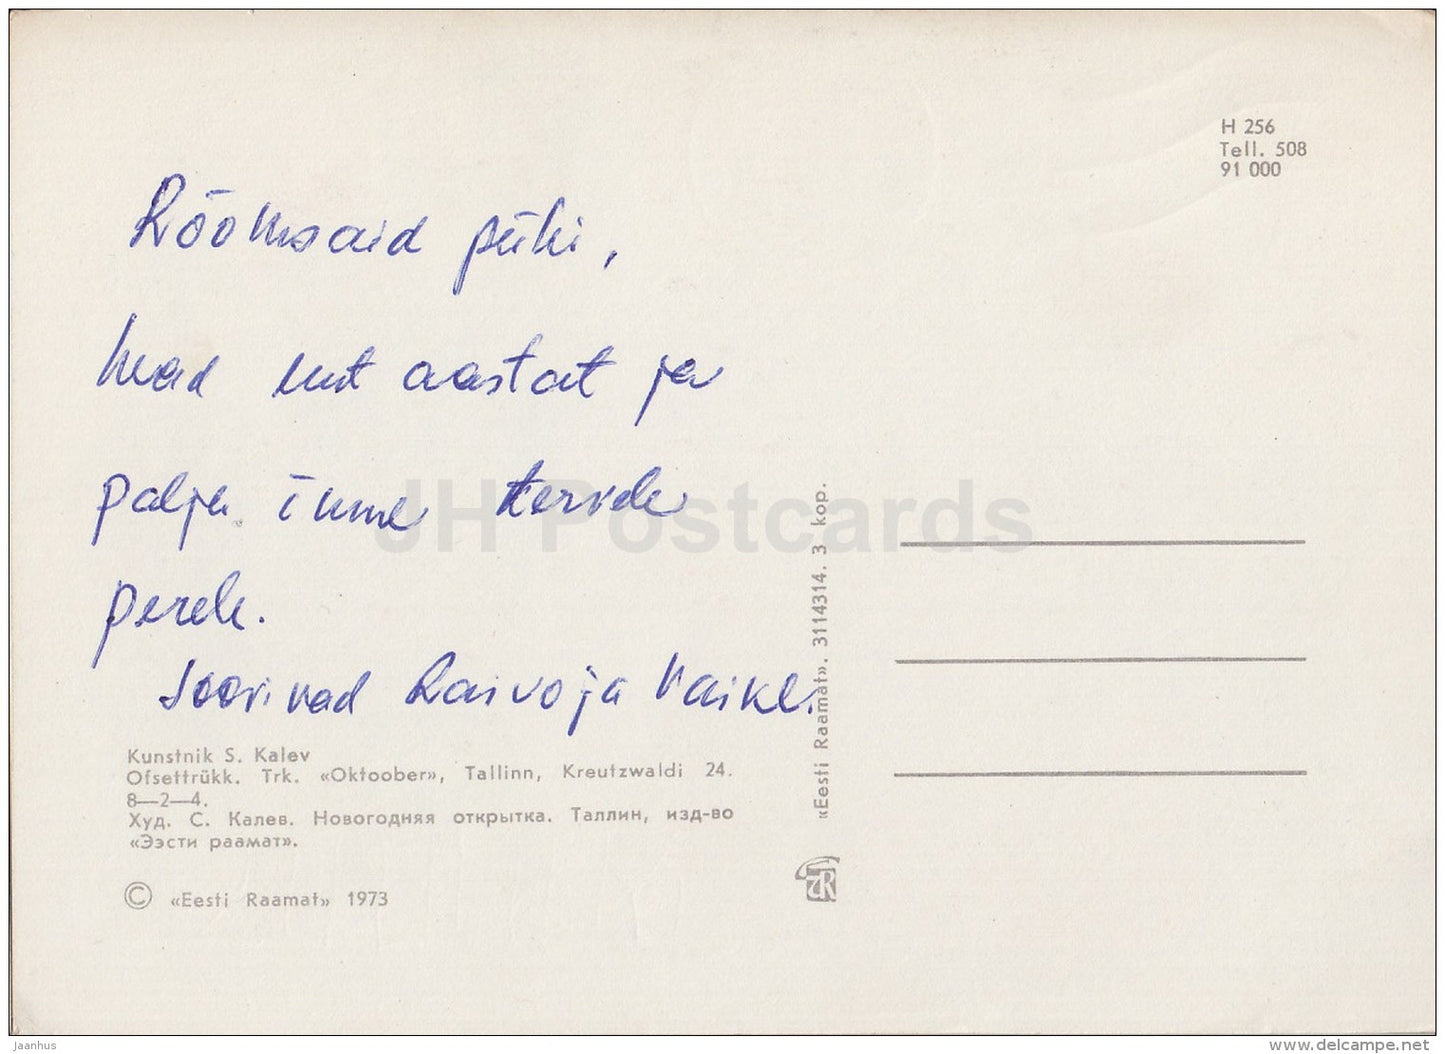 H 256
Tell. 508
91 000
Rõõmsaid pühi,
head uut aastat ja
palju õnne tervele
perele.
Soovivad Raivo ja Maike.
JH Postcards
Kunstnik S. Kalev
Ofsettrükk. Trk. «Oktoober», Tallinn, Kreutzwaldi 24.
8—2—4.
Худ. С. Калев. Новогодняя открытка. Таллин, изд-во
«Ээсти раамат».
© «Eesti Raamat» 1973
«Eesti Raamat». 3114314. 3 kop.
ER
Jaanhus
www.delcampe.net